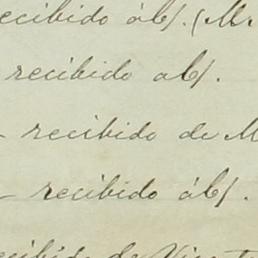 recibido áb/. (M.
recibido ab/.
— recibido de M
— recibido áb/.
recibido de Vicente